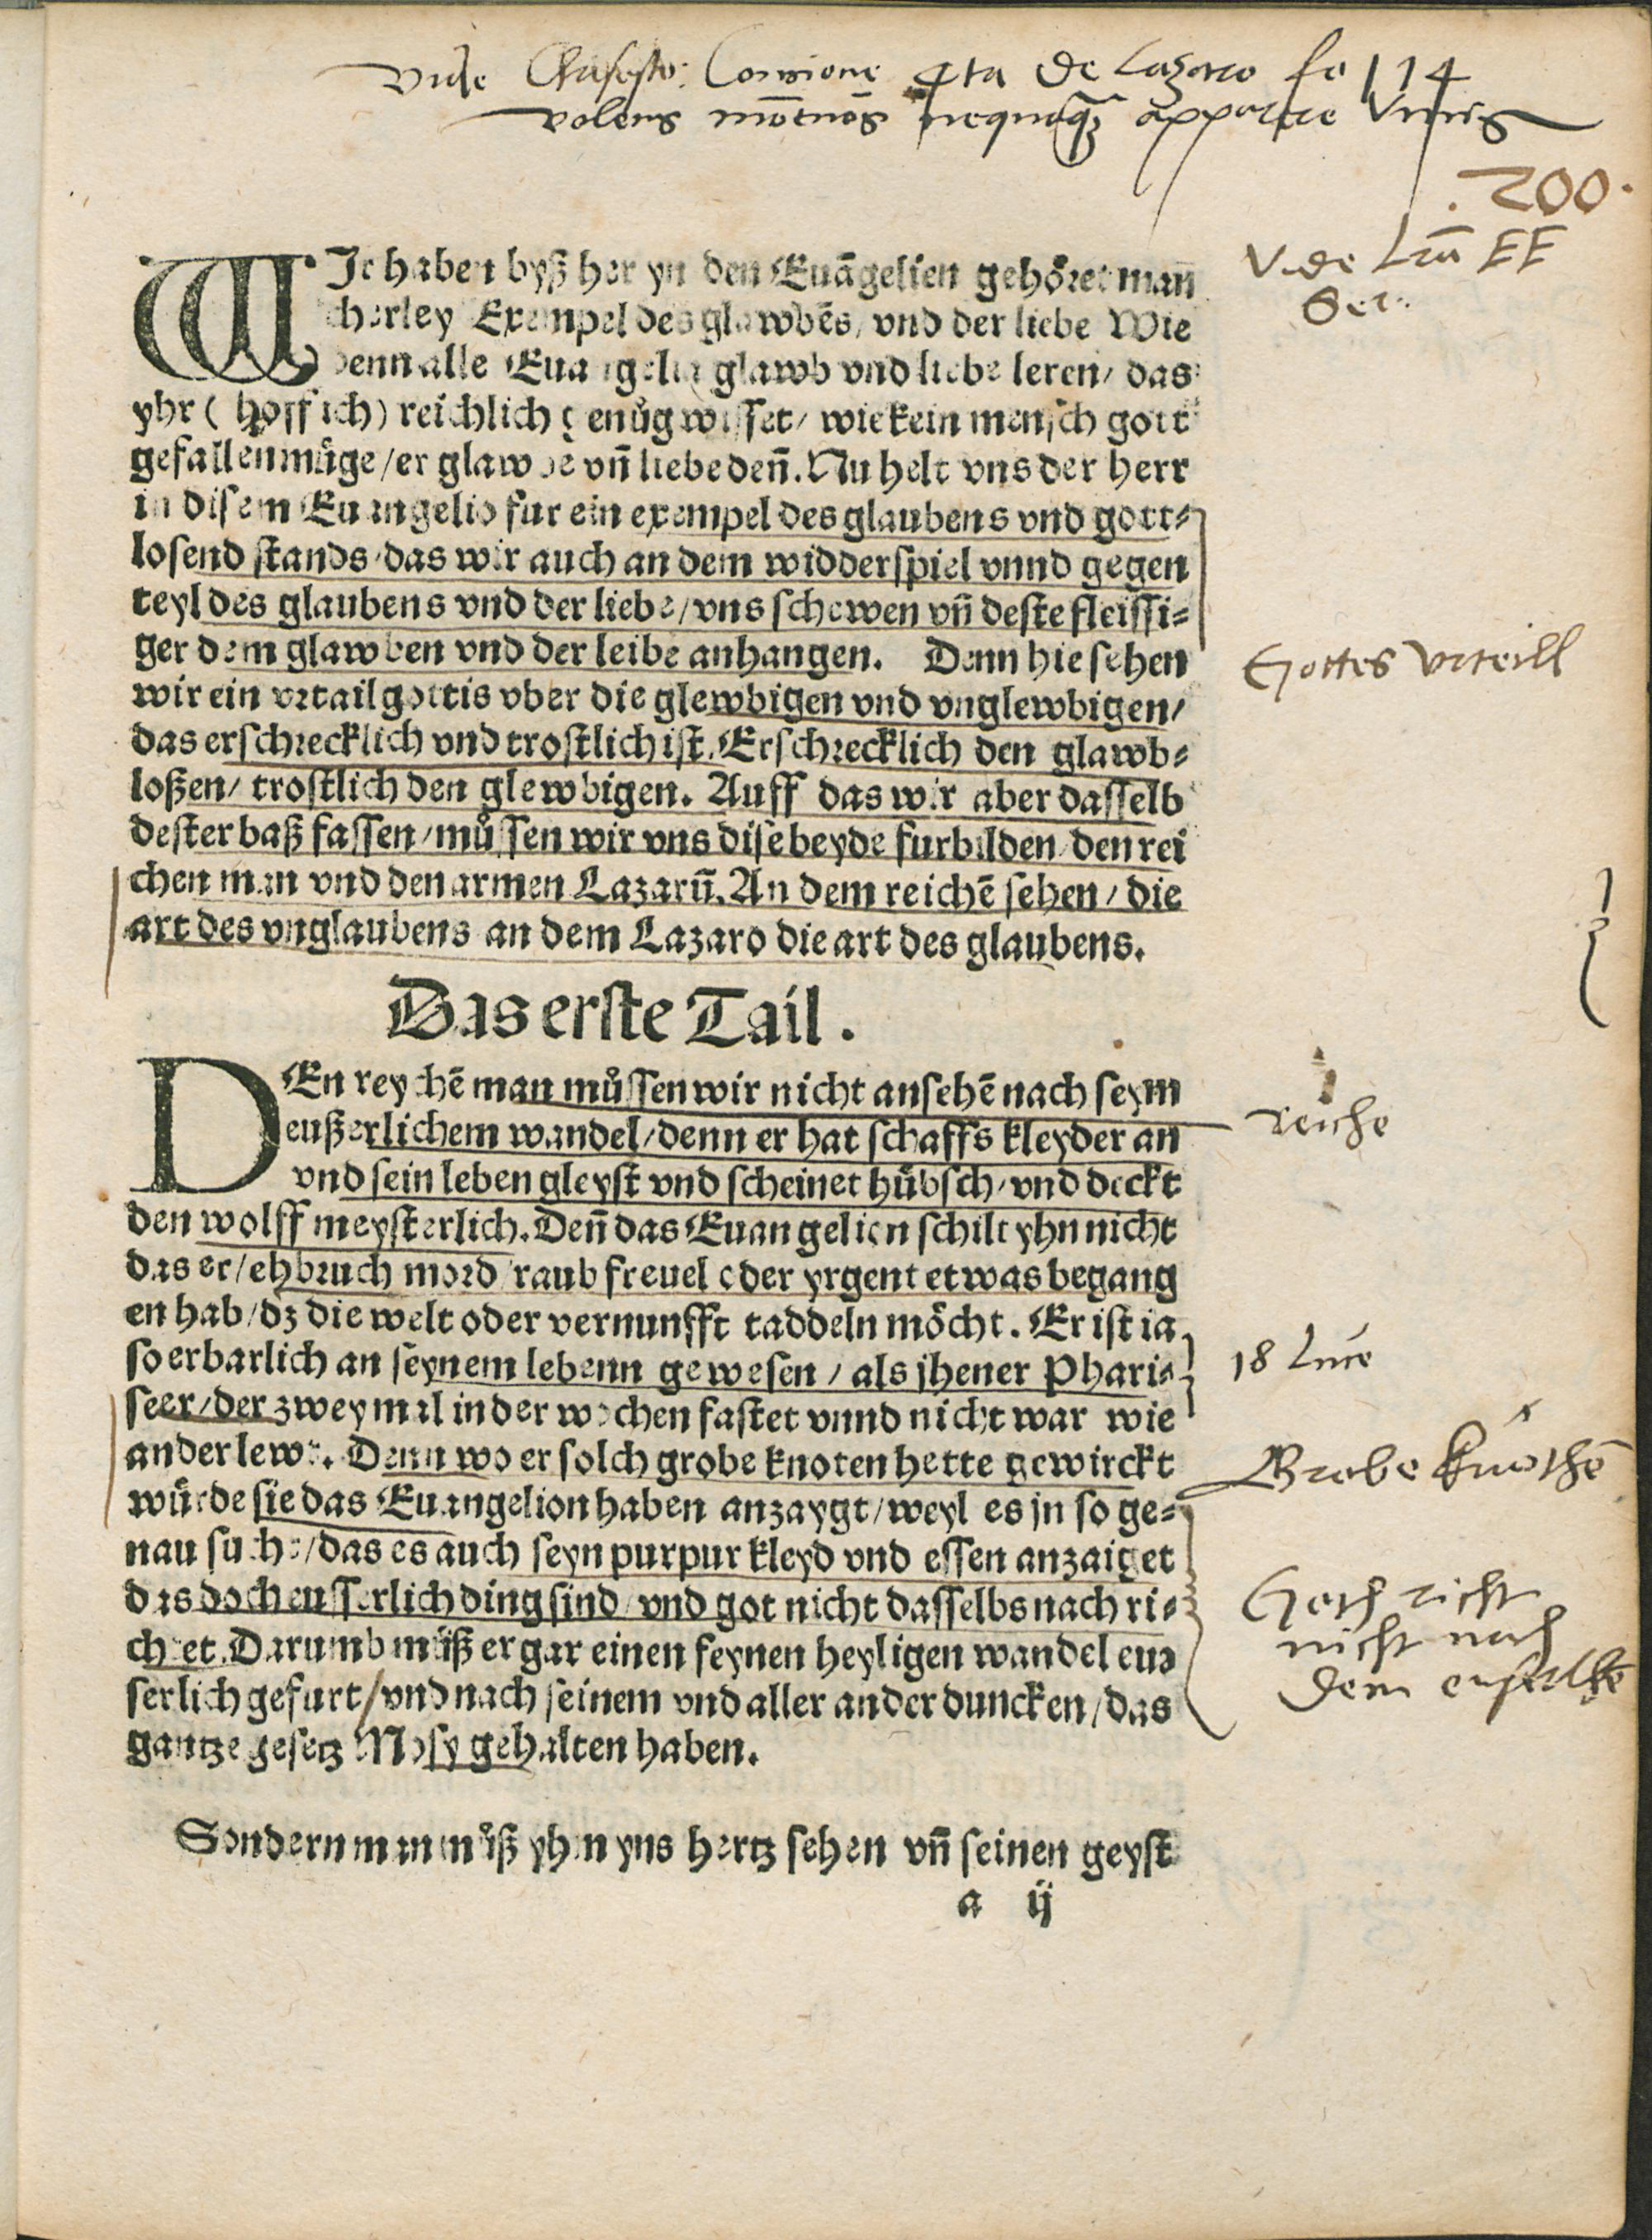 Vide Chrisosto: Concione 4ta de Lazaro fo 114
volens mortuos nequaqȝ apparere vivis
.200.
Vide Lrã EE
WIr haben byß her yn den Euãgelien gehöret man̄
cherley Exempel des glawbēs, vnd der liebe Wie
denn alle Euangelia glawb vnd liebe leren/ das
yhr ( hoff ich) reichlich genůg wisset/ wie kein mensch gott
gefallen můge/er glawbe vn̄ liebe den̄. Nu helt vns der herr
in disem Euangelio fur ein exempel des glaubens vnd gott⸗
losend stands/das wir auch an dem widderspiel vnnd gegen
teyl des glaubens vnd der liebe/vns schewen vn̄ deste fleissi⸗
ger dem glawben vnd der leibe anhangen. Denn hie sehen
wir ein vrtail gottis vber die glewbigen vnd vnglewbigen/
das erschrecklich vnd trostlich ist. Erschrecklich den glawb⸗
loßen/ trostlich den glewbigen. Auff das wir aber dasselb
dester baß fassen/můssen wir vns dise beyde furbilden/den rei
chen man vnd den armen Lazarū. An dem reichē sehen/ die
art des vnglaubens an dem Lazaro die art des glaubens.
Gottes vrteill
Das erste Tail.
DEn reychē man můssen wir nicht ansehē nach seym
eußerlichem wandel/denn er hat schaffs kleyder an
vnd sein leben gleyst vnd scheinet hůbsch/vnd deckt
den wolff meysterlich. Den̄ das Euangelion schilt yhn nicht
das er/ehbruch mord/raub freuel oder yrgent etwas begang
en hab/dz die welt oder vernunfft taddeln möcht. Er ist ia
so erbarlich an seynem lebenn gewesen/ als jhener Phari⸗
seer/der zweymal in der wochen fastet vnnd nicht war wie
ander lewt. Denn wo er solch grobe knoten hette gewirckt
wůrde sie das Euangelion haben anzaygt/weyl es jn so ge⸗
nau sucht/das es auch seyn purpur kleyd vnd essen anzaiget
das doch eusserlich ding sind/vnd got nicht dasselbs nach ri⸗
chtet. Darumb můß er gar einen feynen heyligen wandel eus
serlich gefurt/vnd nach seinem vnd aller ander duncken/das
gantze gesetz Mosy gehalten haben.
reiche
18 Luce
Grobe knothē
Goth richt
nicht nach
dem
Sondern man můß yhn yns hertz sehen vn̄ seinen geyst
a ij